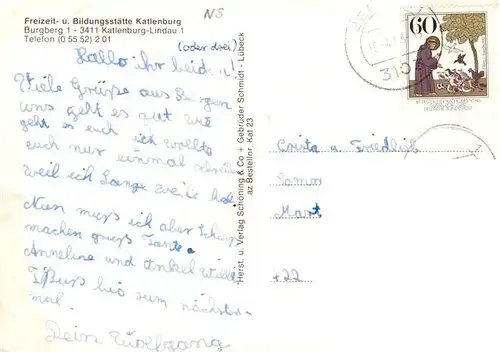 Freizeit- u. Bildungsstätte Katlenburg
Burgberg 1 - 3411 Katlenburg-Lindau 1
Telefon (0 55 52) 2 01
NS
(oder drei)
Hallo ihr beiden!
Viele Grüße aus
uns geht es gut wie
geht es euch ich wollte
euch nur einmal
weil ich Lange weile
Nun muß ich aber Schluß
machen grüß Tante
Anneline und Onkel Willi
Tschüss bis zum nächsten
mal.
Dein Wolfgang
Herst. u. Verlag Schöning & Co + Gebrüder Schmidt - Lübeck
az Bestellnr. Kat 23
60
310
Grita u. Friedhelm
Mart
+22